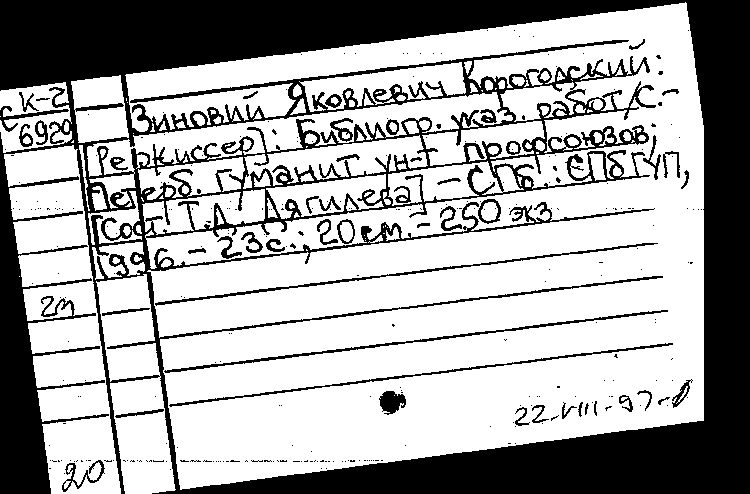 К-2
с 6929
Зиновий Яковлевич Корогодский:
[Режиссер]: Библиогр. указ. работ/С.-
Петерб. гуманит. ун-т профсоюзов;
[Сост. Т.Д. Дягилева]. - СПб.: СПбГУП,
1996. - 23с.; 20см. - 250 экз
2т
22-VIII-97-
20